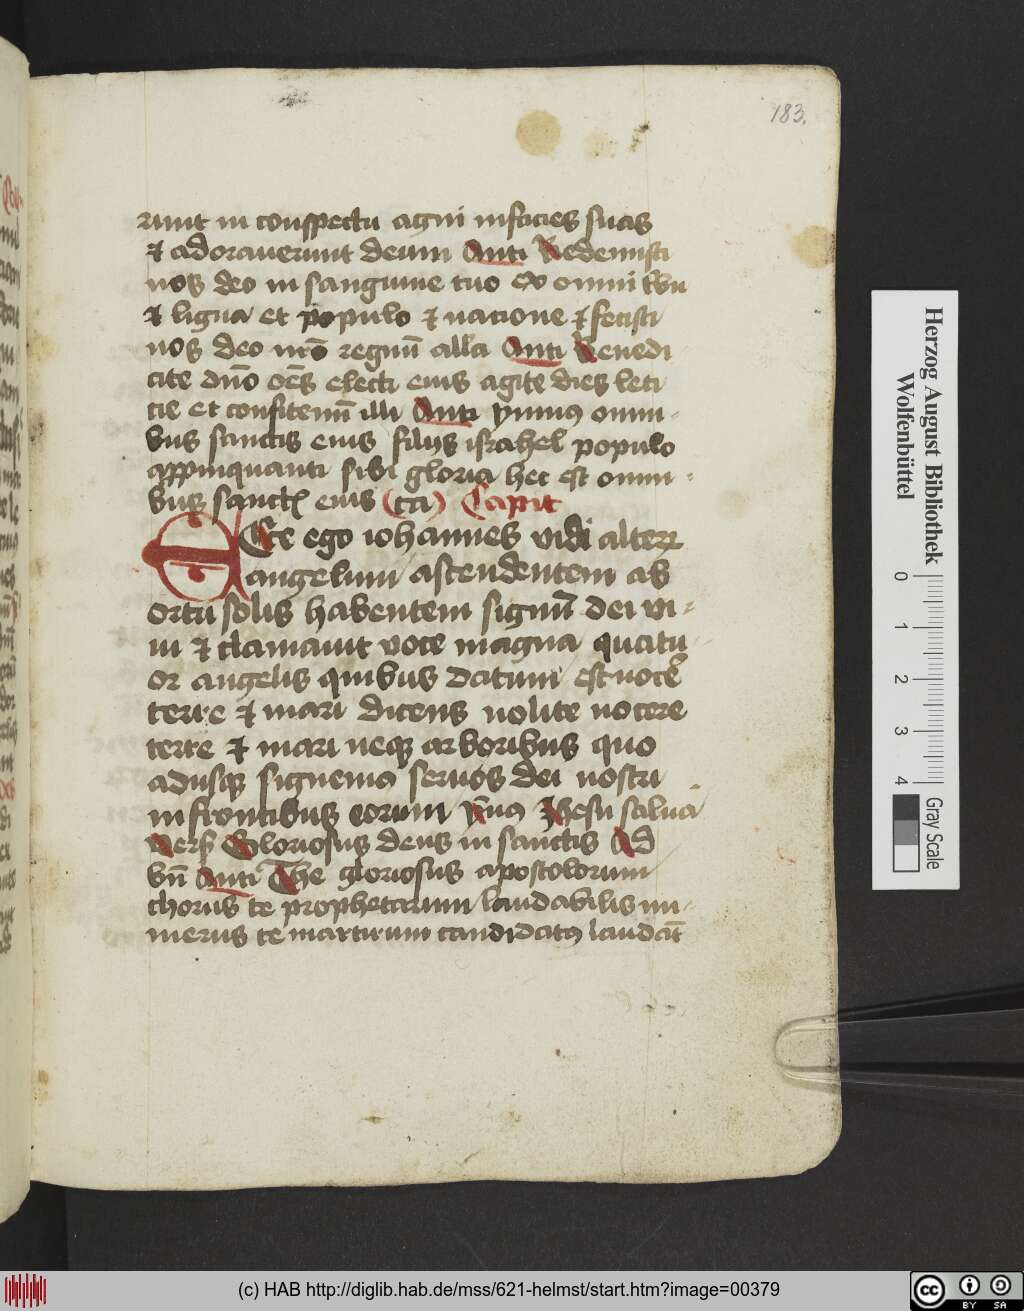 183.
runt in conspectu agni infacies suas
⁊ adoraverunt deum Anti Redemisti
nos deo in sanguine tuo ex omni tbu
⁊ ligua et populo ⁊ nacione ⁊ fecisti
nos deo nrō regnū alla Anti Benedi
cite dnō oēs electi eius agite dies leti
cie et confitemī illi Anti ymnus omni-
bus sanctis eius filijs israhel populo
appinquanti sibi gloria hec est omni-
bus sanctis eius (ca) Capit
Ecce ego iohannes vidi alterū
angelum ascendentem ab
ortu solis habentem signū dei vi-
ui ⁊ clamauit voce magna quatu
or angelis quibus datum est nocē
terre ⁊ mari dicens nolite nocere
terre ⁊ mari neqꝫ arboribus quo
adusqꝫ signemus seruos dei nostri
in frontibus eorum ymus Jhesu salua
vers Gloriosus deus in sanctis Ad
bn̄ Anti The gloriosus apostolorum
chorus te prophetarum laudabilis nu-
merus te martirum candidatus laudat
Herzog August Bibliothek
Wolfenbüttel
0 1 2 3 4
Gray Scale
(c) HAB http://diglib.hab.de/mss/621-helmst/start.htm?image=00379
cc BY SA